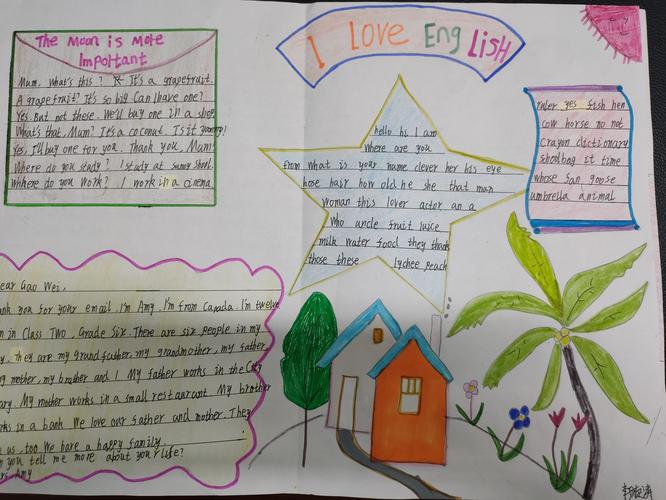 I Love English
The Moon is More
Important
Mum. What's this? It's a grapefruit.
A grapefruit? It's so big Can I have one?
Yes. But not these. We'll buy one in a shop.
What's that, Mum? It's a coconut. Is it yummy!
Yes, I'll buy one for you. Thank you, Mum!
Where do you study? I study at sunny shool.
Whhere do you work? I work in a cinema
hello hi I am
where are you
from what is your name clever her his eye
hose hair how old he she that man
woman this lover actor an a
who uncle fruit juice
milk water food they thank
those these lychee peach
ruler yes fish hen
cow horse no not
crayon dictionary
shoolbag it time
whose fan goose
umbrella animal
ear Gao Wei,
ank you for your email. I'm Amy. I'm from Canada. I'm twelve
m in Class Two, Grade Six. There are six people in my
y. They are my grandfather, my grandmother, my father
my mother, my brother and I. My father works in the City
ary. My mother works in a small restaurant My brother
rks in a bank We love our father and mother. They
e us, too We bare a happy family
n you tell me more about your life?
rs, Amy